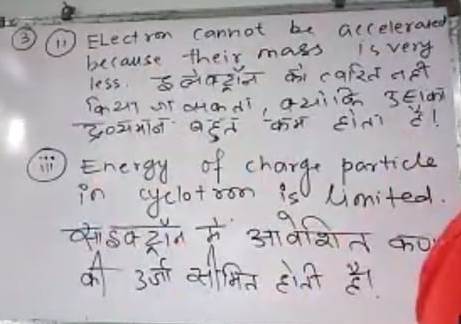 ③ (ii) Electron cannot be accelerated
because their mass is very
less. इलेक्ट्रॉन को त्वरित नहीं
किया जा सकता, क्योंकि उसका
द्रव्यमान बहुत कम होता है!
(iii) Energy of charge particle
in cyclotron is limited.
साइक्ट्रॉन में आवेशित कण
की उर्जा सीमित होती है।